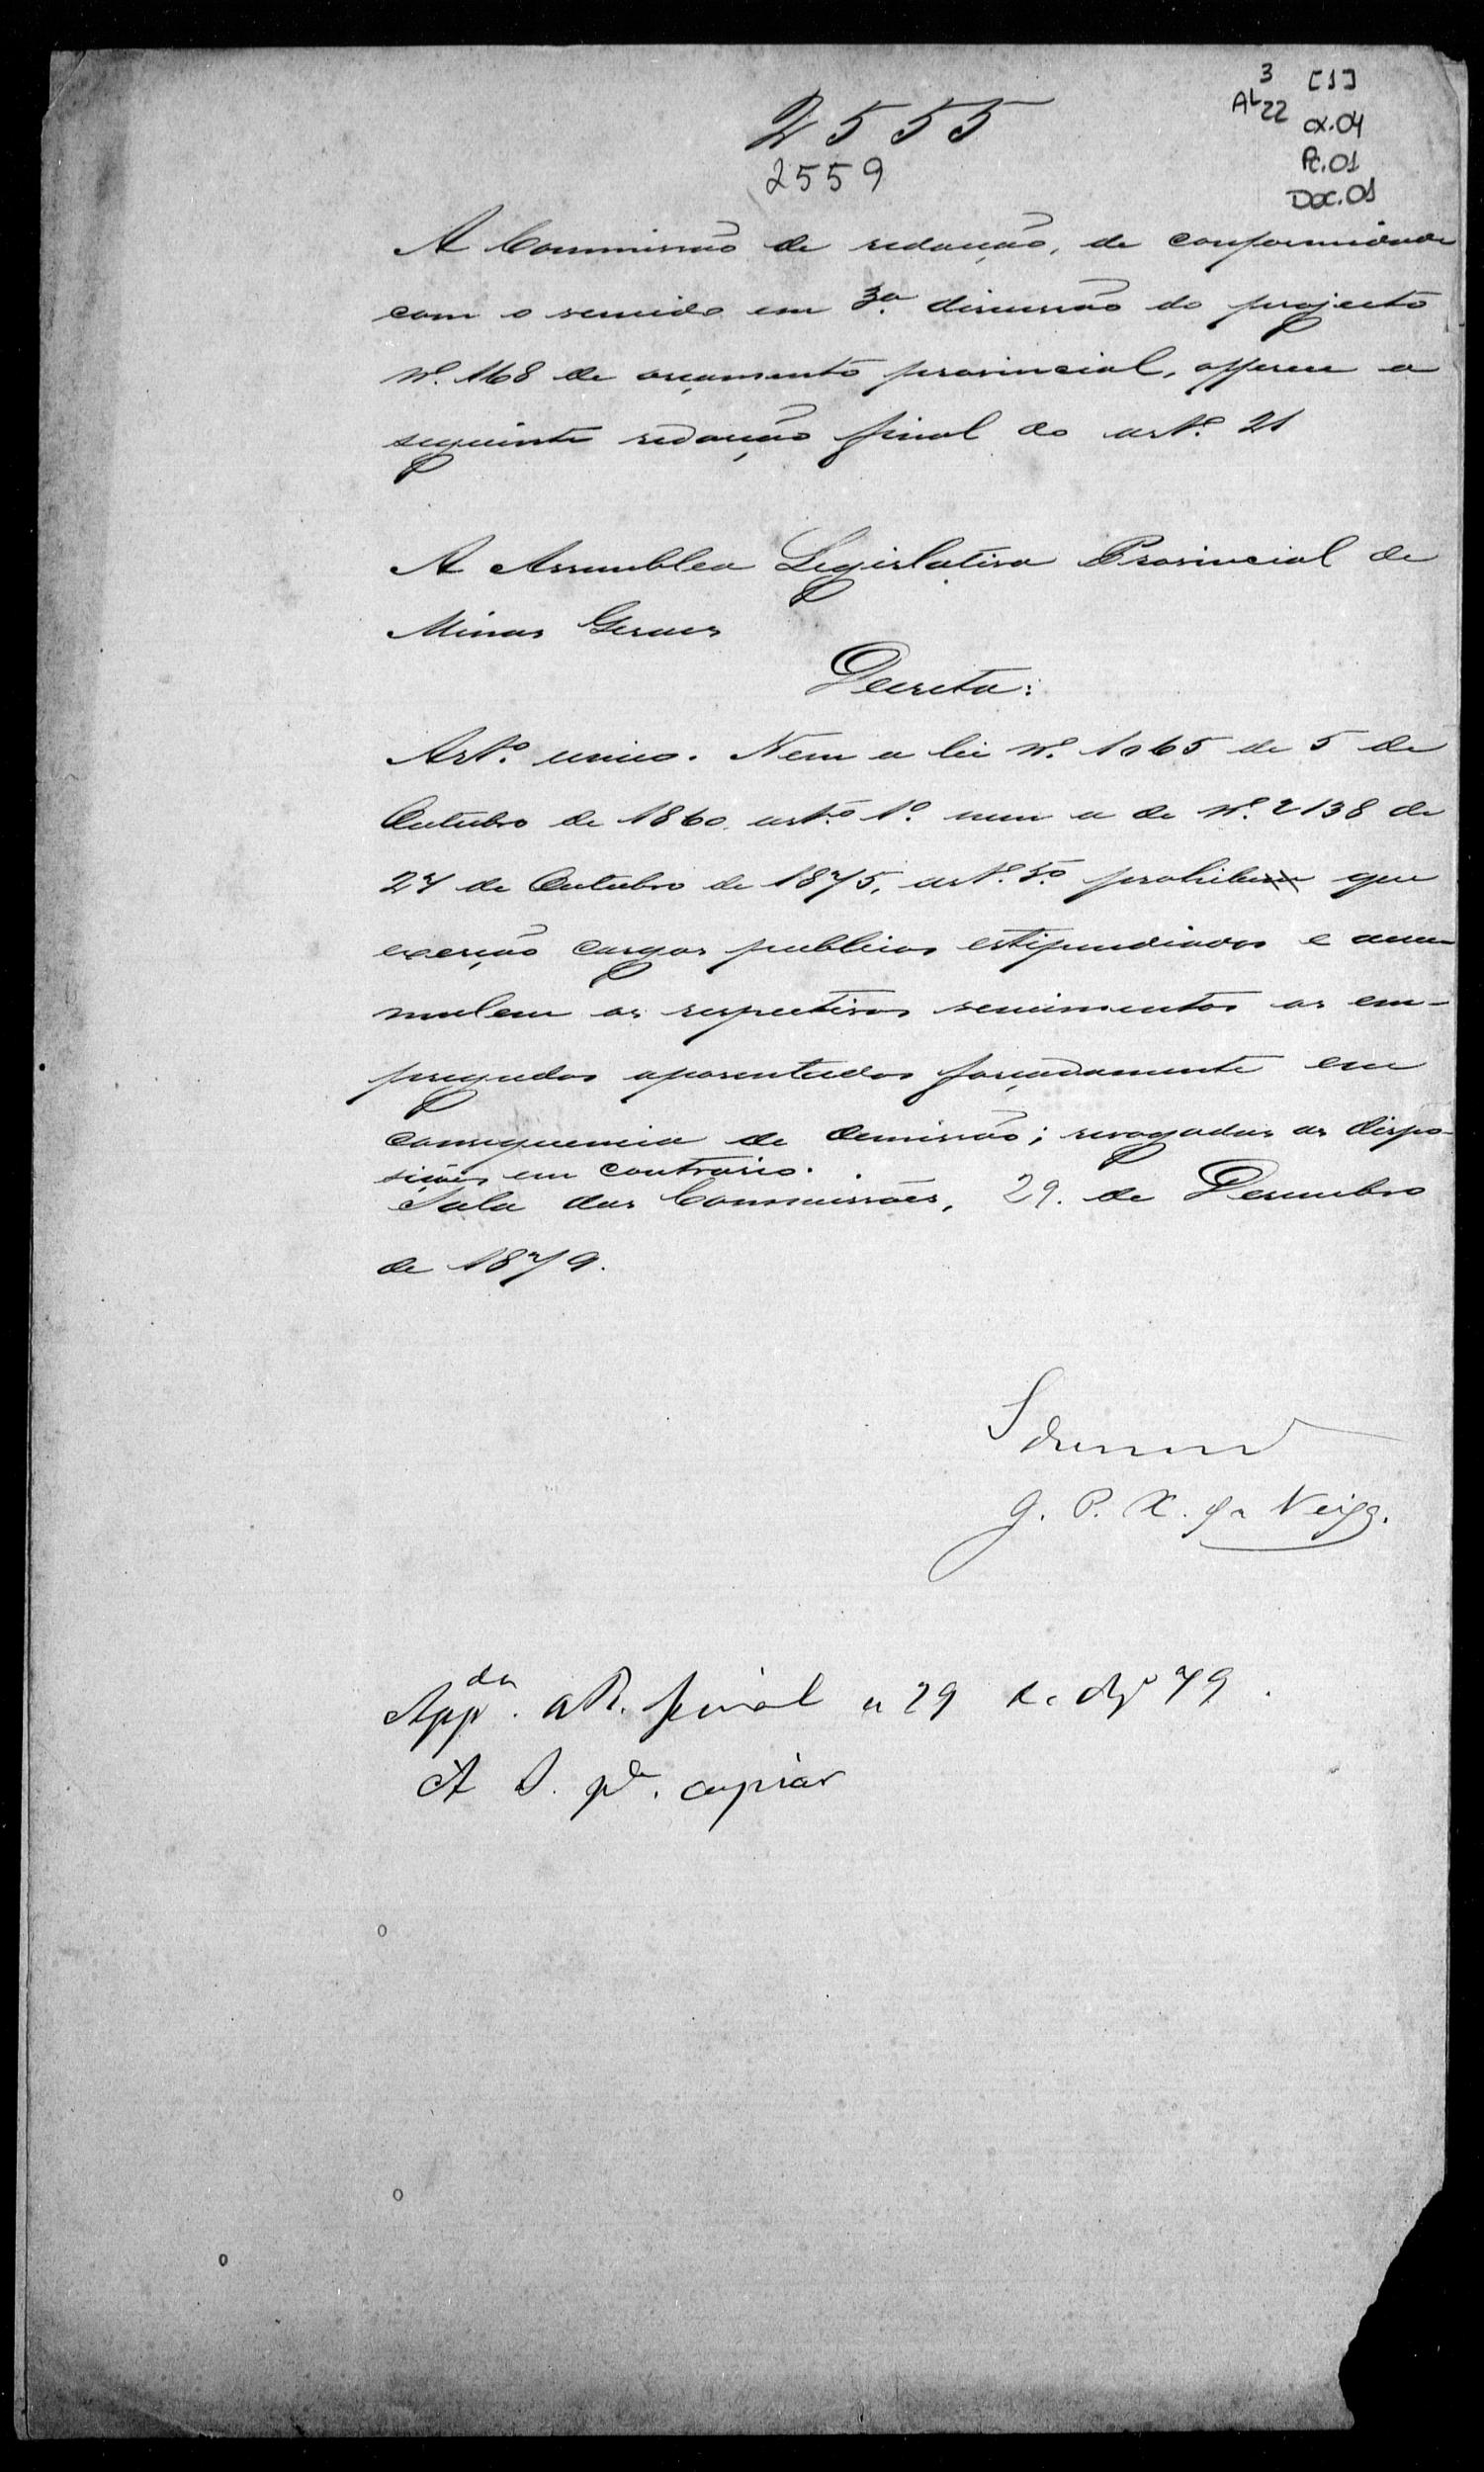 2555
2559
3 [1]
AL 22 cx.04
Pc.01
Doc.01
A Commissão de redacção, de conformidade
com o vencido em 3ª discussão do projecto
Nº 168 de orçamento provincial, offerece a
seguinte redacção final do artº 21
A Assemblea Legislativa Provincial de
Minas Geraes
Decreta:
Artº unico. Nem a lei Nº 1065 de 5 de
Outubro de 1860 artº 1º nem a de Nº 2138 de
27 de Outubro de 1875, artº 5º prohibem que
exerção cargos publicos estipendiados e accu
mulem os respectivos vencimentos os em-
pregados aposentados forçadamente em
consequencia de demissão; revogadas as dispo
sições em contrario.
Sala das Commissões, 29 de Desembro
de 1879.
J. P. X. da Veiga.
Appda. a R. final a 29 de dzº 79.
A S. pª. copiar